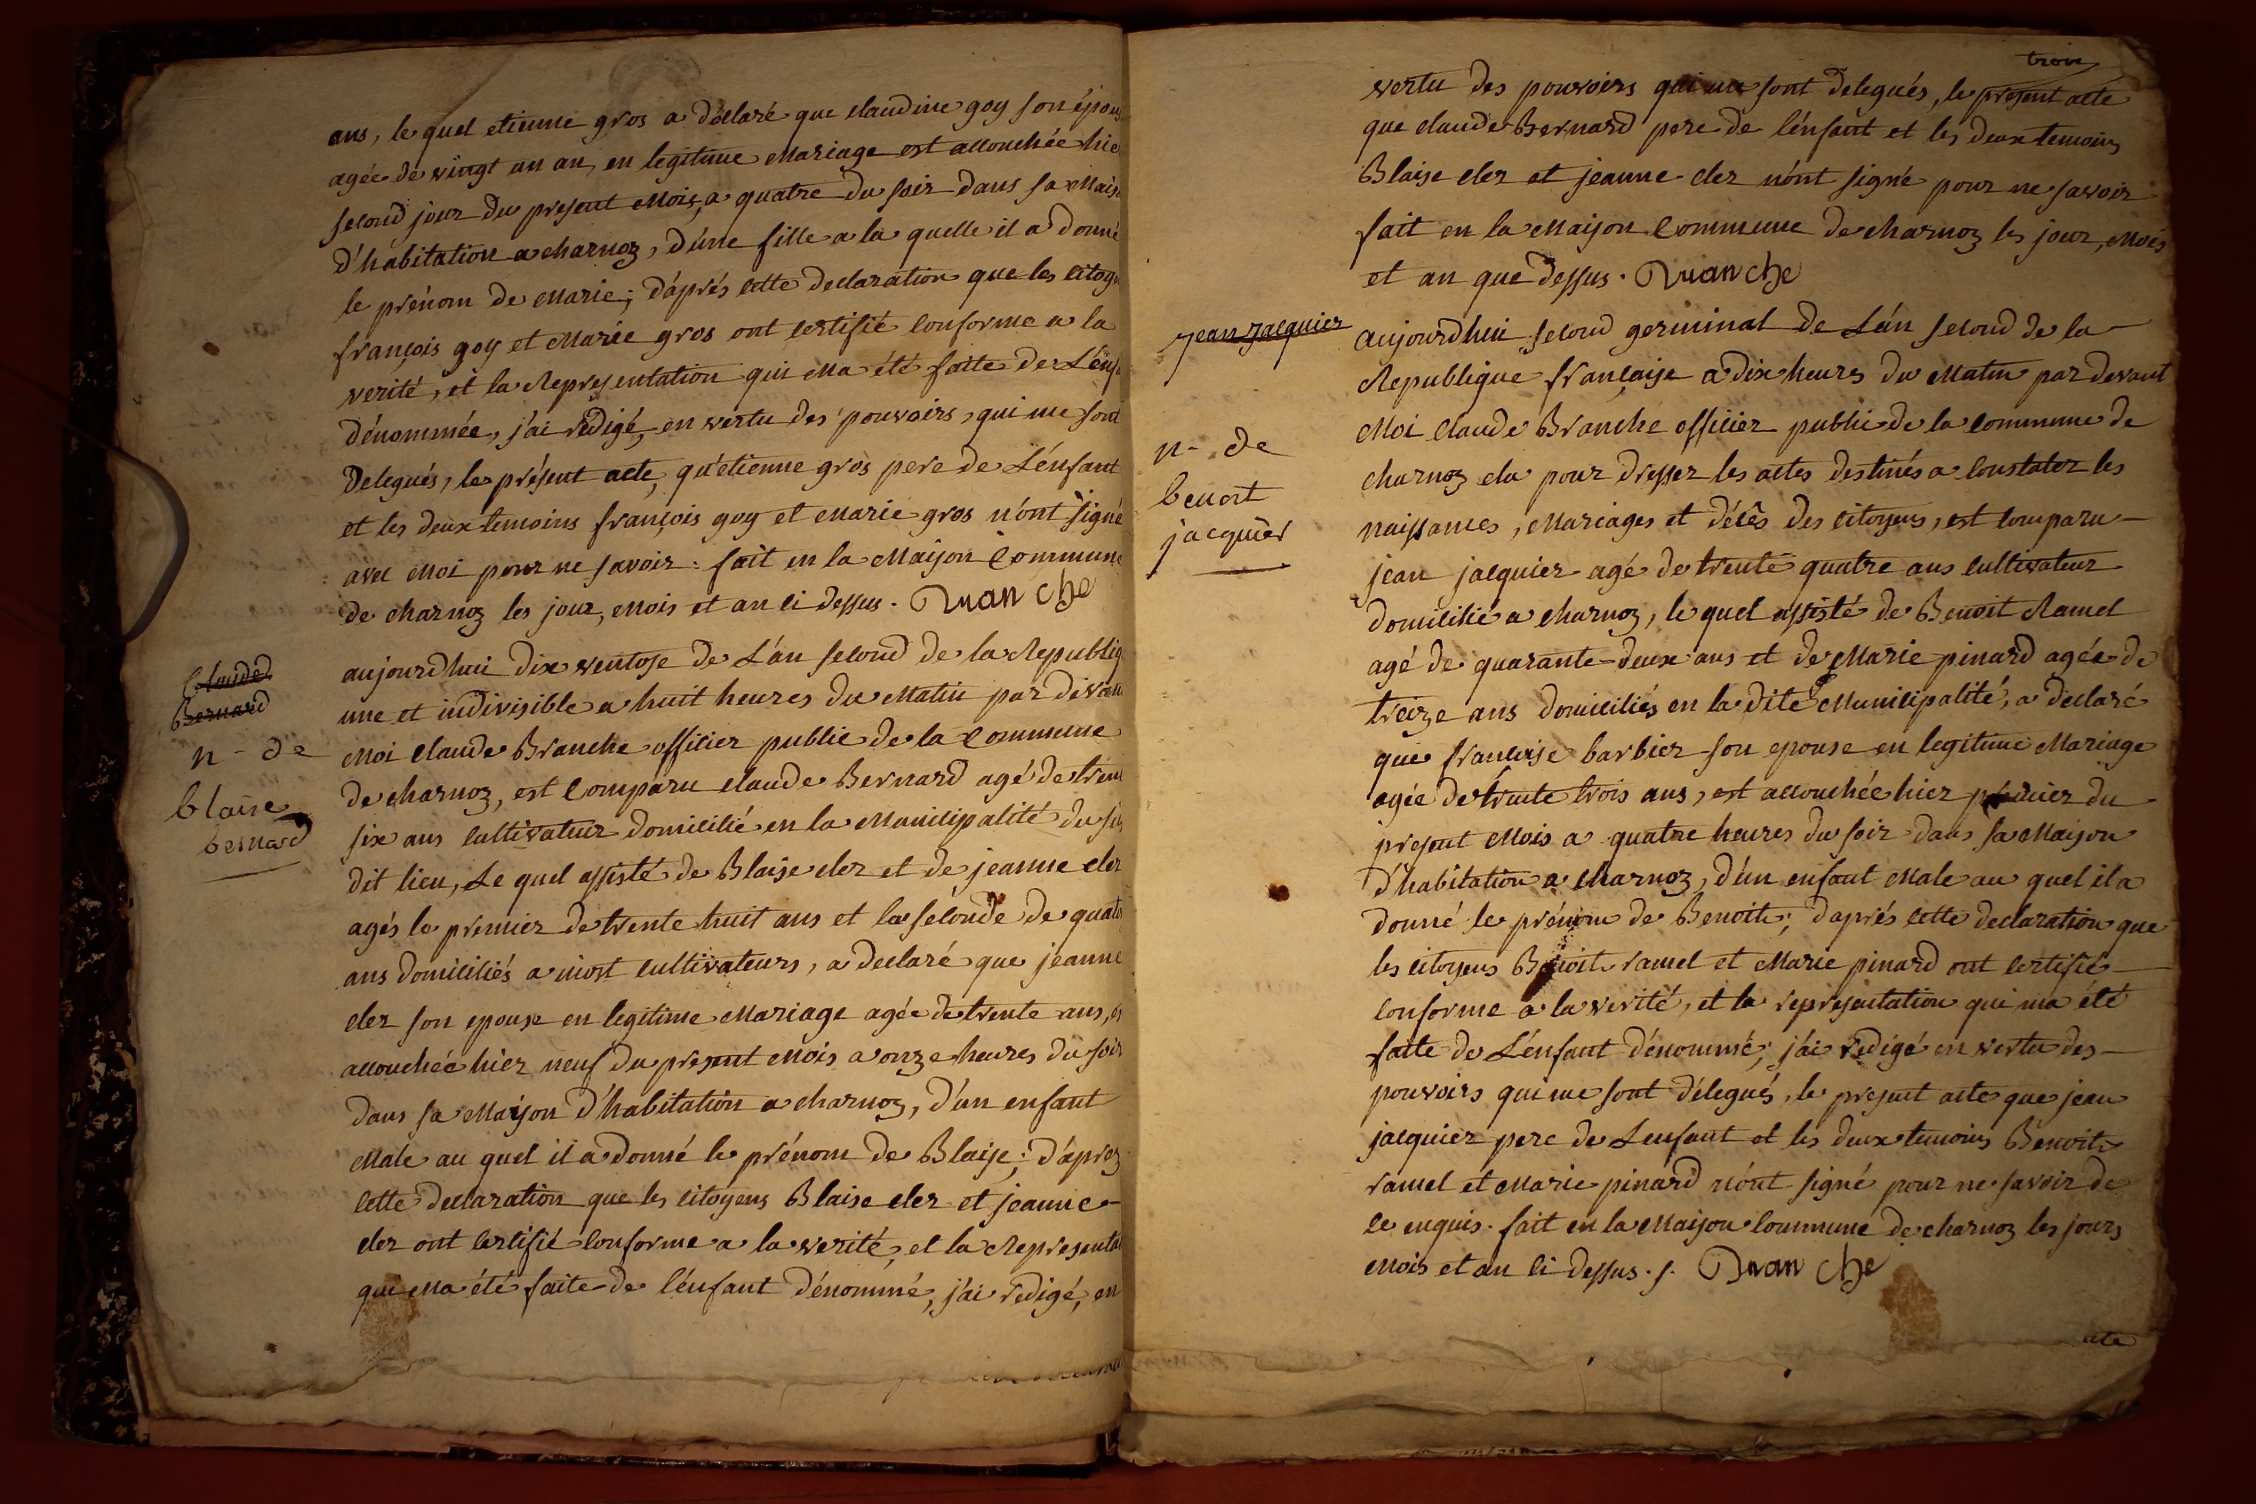 ans, le quel etienne gros a déclaré que claudine goy son épou
agée de vingt un an, en legitime Mariage est accouchée hie
second jour du present Mois, a quatre du soir dans sa Mais
d'habitation a charnoz, d'une fille a la quelle il a donné
le prénom de Marie; d'aprés cette declaration que les citoy
françois goy et Marie gros ont certifié conforme a la
verité, et la Representation qui ma été faite de L'enf
dénommée, j'ai redigé, en vertu des pouvoirs, qui me sont
Delegués, le présent acte, qu'etienne gros pere de L'énfant
et les deux temoins françois goy et Marie gros n'ont signé
avec Moi pour ne savoir: fait en la Maison Commune
de charnoz les jour, Mois et an ci dessus. Branche
Claude
Bernard
n - de
blaise
bernard
aujourdhui dix ventose de L'án second de la Republiq
une et indivisible a huit heures du Matin par devan
Moi claude Branche officier public de la Commune
de charnoz, est Comparu claude Bernard agé de tren
six ans cultivateur domicilié en la Municipalité du su
dit lieu, Le quel assisté de Blaise cler et de jeanne cler
agés le premier de trente huit ans et la seconde de quato
ans domiciliés a niost cultivateurs, a declaré que jeanne
cler son epouse en legitime Mariage agée de trente ans, es
accouchée hier neuf du present Mois a onze heures du soir
dans sa Maison d'habitation a charnoz, d'un enfant
Male au quel il a donné le prénom de Blaise; d'aprés
cette declaration que les citoyens Blaise cler et jeanne
cler ont certifié conforme a la verité, et la Representat
qui Ma été faite de l'énfant dénommé, j'ai redigé, en
trois
vertu des pouvoirs qui me sont delegués, le present acte
que claude Bernard pere de l'énfant et les deux temoins
Blaise cler et jeanne cler n'ont signé pour ne savoir
fait en la Maison Commune de charnoz les jour, Mois
et an que dessus. Branche
Jean Jacquier
n - de
benoit
jacquier
aujourdhui second germinal de L'án second de la
Republique française a dix heures du Matin par devant
Moi claude Branche officier public de la commune de
charnoz elu pour dresser les actes destinés a constater les
naissances, Mariages et décês des citoyens, est comparu
jean jacquier agé de trente quatre ans cultivateur
domicilié a charnoz, le quel assisté de Benoit Ramel
agé de quarante-deux ans et de Marie pinard agée de
treize ans domiciliés en la dite Municipalité, a declaré
que françoise barbier son epouse en legitime Mariage
agée de trente trois ans, est accouchée hier premier du
present Mois a quatre heures du soir dans sa Maison
d'habitation a charnoz, d'un enfant Male au quel il a
donné le prénom de Benoit; d'aprés cette declaration que
les citoyens Benoit ramel et Marie pinard ont certifié
conforme a la verité, et la representation qui ma été
faite de L'énfant dénommé; j'ai redigé en vertu des
pouvoirs qui me sont délegués, le present acte que jean
jacquier pere de Lenfant et les deux temoins Benoit
ramel et Marie pinard n'ont signé pour ne savoir de
ce enquis. fait en la Maison Commune de charnoz les jours
Mois et an ci dessus. s. Branche